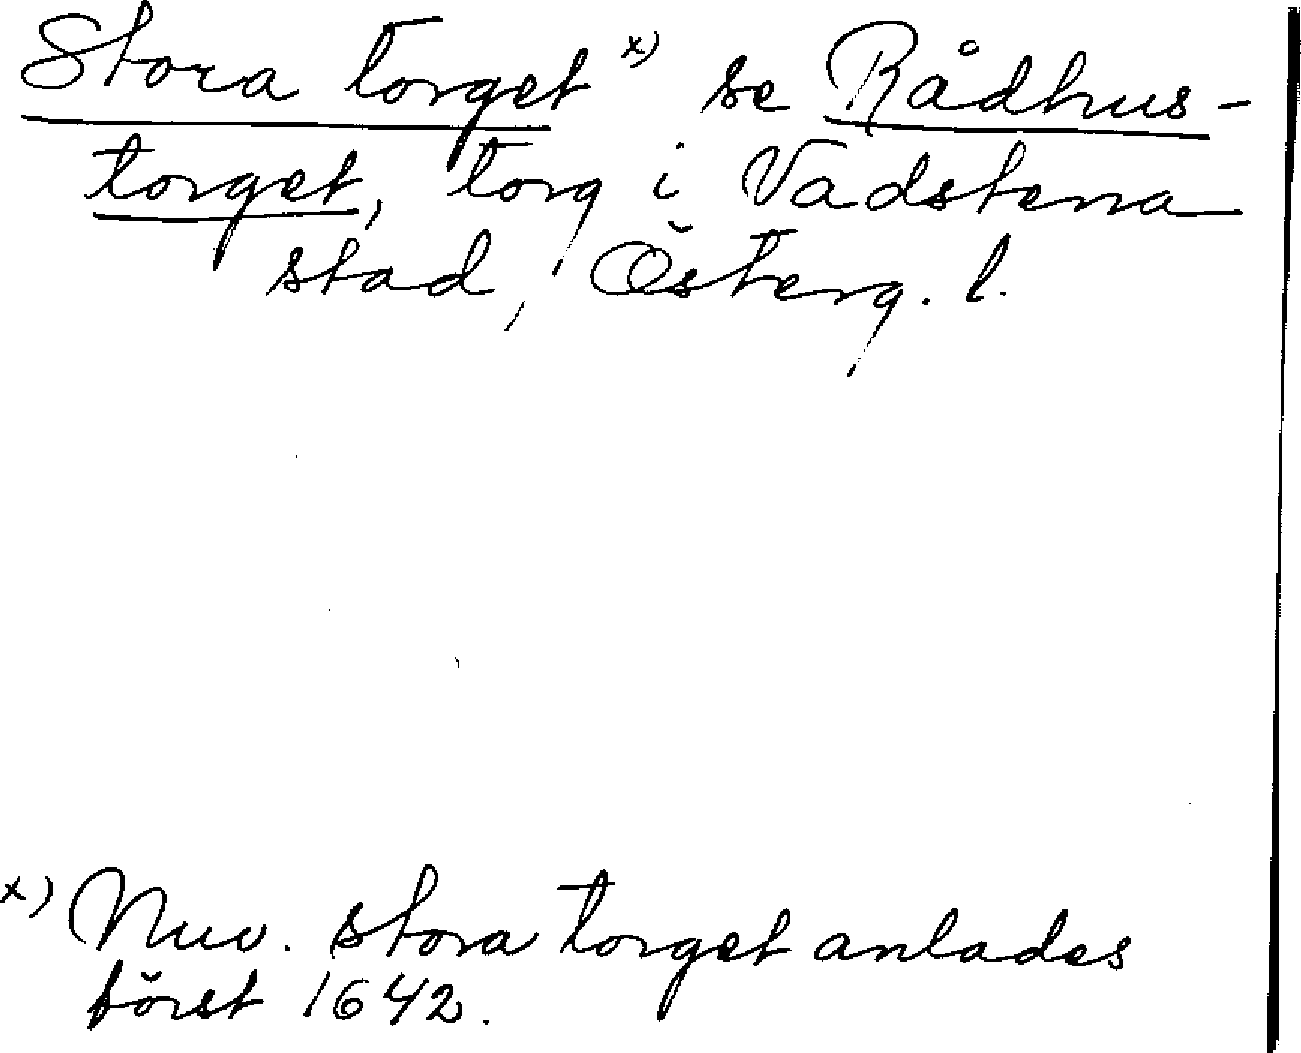 Stora torget x) se Rådhus-
torget, torg i Vadstena
stad, Österg. l.
x) Nuv. stora torget anlades
först 1642.